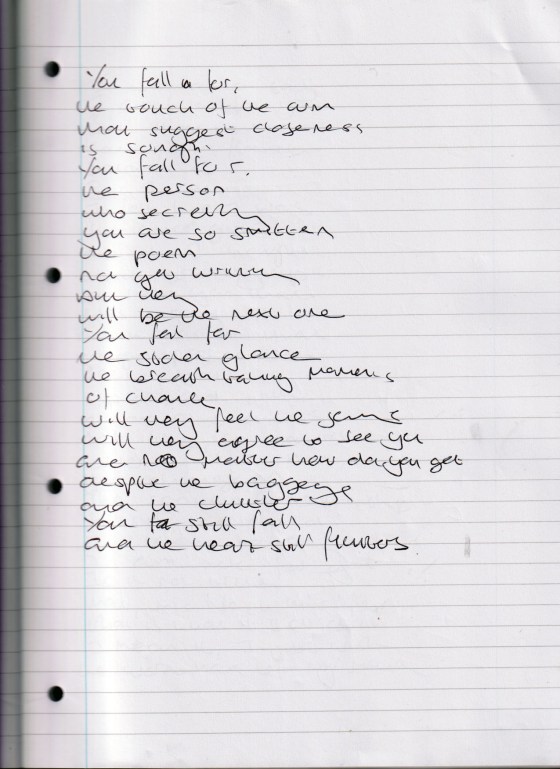 You fall for,
the touch of the arm
that suggest closeness
is sought.
You fall for,
the person
who secretly
you are so smitten
the poem
not yet written
but they
will be the next one
You fall for
the stolen glance
the breath taking moments
of chance
will they feel the same
will they agree to see you
and no matter how old you get
despite the baggage
and the clutter
You still fall
and the heart still flutters